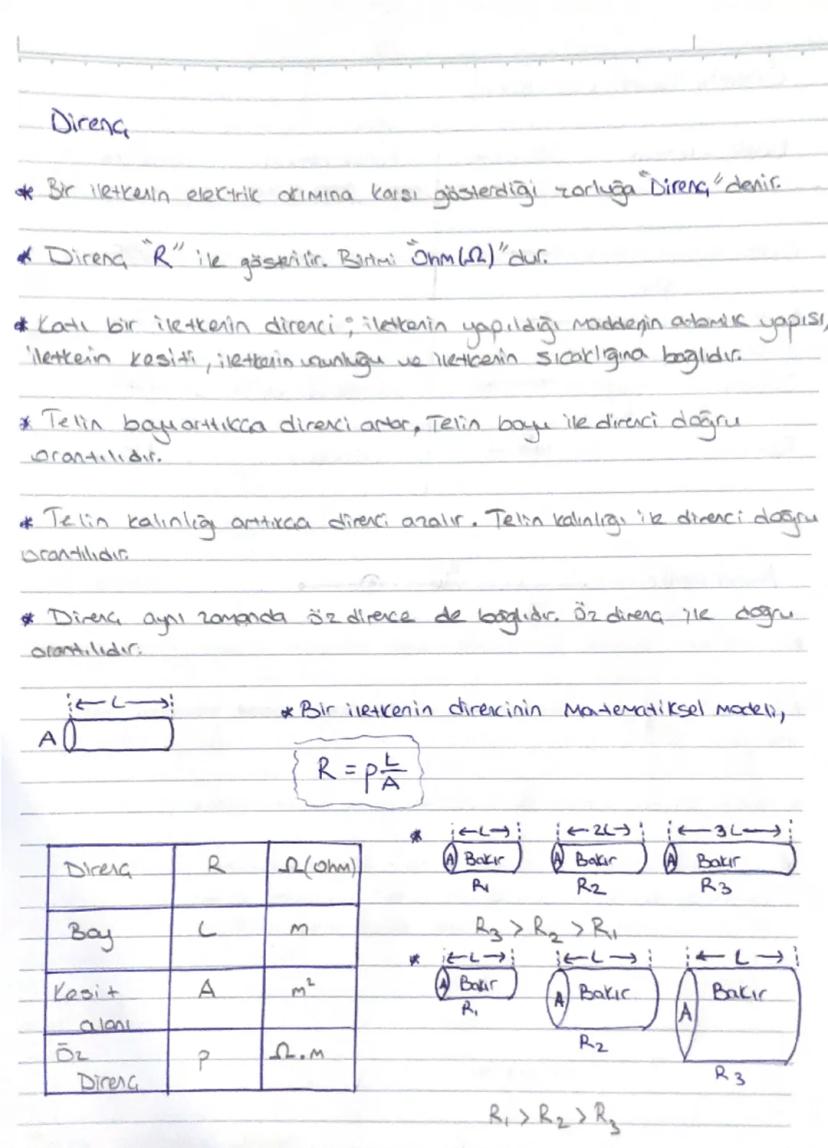 Direnç
* Bir iletkenin elektrik akımına karşı gösterdiği zorluğa "Direnç" denir.
* Direnç "R" ile gösterilir. Birimi "Ohm(Ω)" dur.
* Katı bir iletkenin direnci; iletkenin yapıldığı maddenin atomik yapısı,
iletkenin kesiti, iletkenin uzunluğu ve iletkenin sıcaklığına bağlıdır.
* Telin boyu arttıkça direnci artar, Telin boyu ile direnci doğru
orantılıdır.
* Telin kalınlığı arttıkça direnci azalır. Telin kalınlığı ile direnci doğru
orantılıdır.
* Direnç aynı zamanda öz dirence de bağlıdır. Öz direnç ile doğru
orantılıdır.
L
A
* Bir iletkenin direncinin Matematiksel modeli,
R = ρ L/A
Direnç R Ω(Ohm)
Boy L m
Kesit alanı A m²
Öz Direnç ρ Ω.m
* L 2L 3L
A Bakır A Bakır A Bakır
R₁ R₂ R₃
R₃ > R₂ > R₁
* L L L
A Bakır A Bakır A Bakır
R₁ R₂ R₃
R₁ > R₂ > R₃